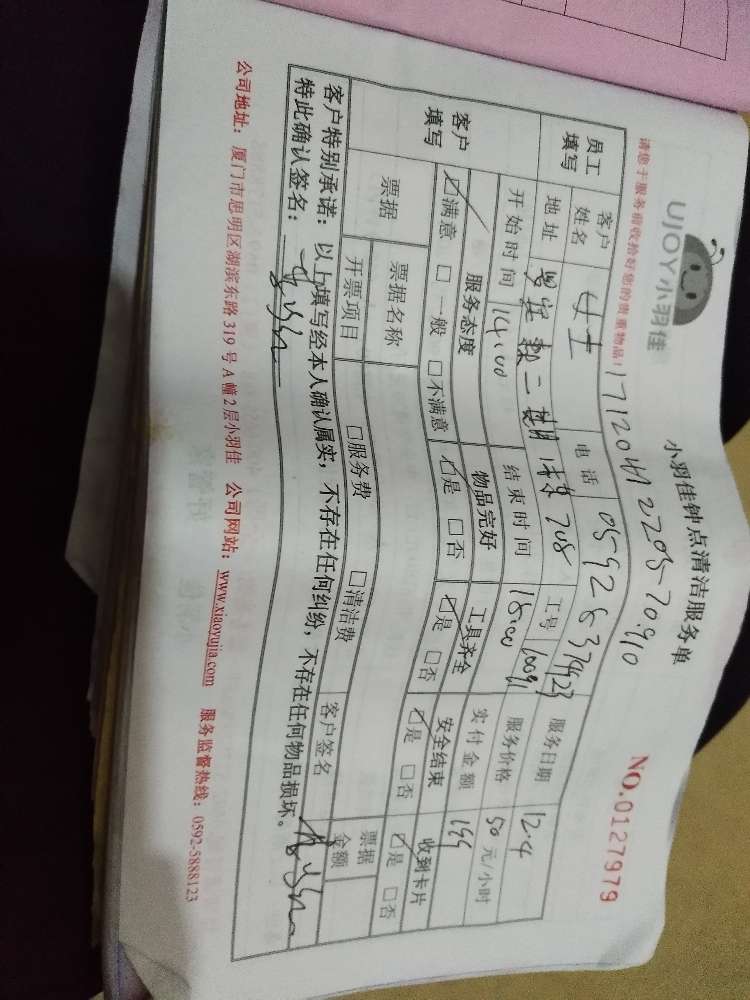 UJOY小羽佳
小羽佳钟点清洁服务单
NO.0127979
请您于服务前收拾好您的贵重物品！
员工填写 客户姓名 女士 电话 服务日期 12.4
地址 二期 708 工号 服务价格 50 元/小时
开始时间 14:00 结束时间 18:00 实付金额
客户填写 服务态度 物品完好 工具齐全 安全结束 收到卡片
☑满意 □一般 □不满意 ☑是 □否 ☑是 □否 ☑是 □否 ☑是 □否
票据 票据名称 客户签名 票据金额
开票项目 □服务费 □清洁费
客户特别承诺：以上填写经本人确认属实，不存在任何纠纷，不存在任何物品损坏。
特此确认签名：
公司地址：厦门市思明区湖滨东路 319 号 A 幢 2 层小羽佳 公司网站：www.xiaoyujia.com 服务监督热线：0592-5888123